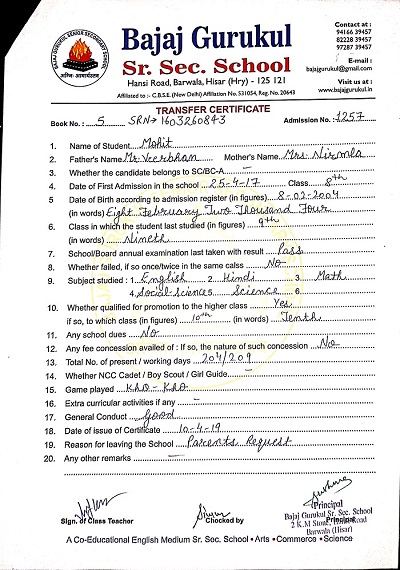 Contact at :
94166 39457
82228 39457
97287 39457
E-mail :
bajajgurukul@gmail.com
Visit us at :
www.bajajgurukul.in
BAJAJ GURUKUL SENIOR SECONDARY SCHOOL
Bajaj Gurukul
Sr. Sec. School
Hansi Road, Barwala, Hisar (Hry) - 125 121
Affiliated to :- C.B.S.E. (New Delhi) Affiliation No. 531054, Reg. No. 20643
TRANSFER CERTIFICATE
Book No.: 5 SRN→1603260843 Admission No. 1257
1. Name of Student Mohit
2. Father's Name Mr. Veerbhan Mother's Name Mrs Nirmla
3. Whether the candidate belongs to SC/BC-A —
4. Date of First Admission in the school 25-4-17 Class 8th
5. Date of Birth according to admission register (in figures) 8-02-2004
(in words) Eight February Two Thousand Four
6. Class in which the student last studied (in figures) 9th
(in words) Nineth
7. School/Board annual examination last taken with result Pass
8. Whether failed, if so once/twice in the same calss NO
9. Subject studied : 1. English 2. Hindi 3. Math
4. Social Science 5. Science 6.
10. Whether qualified for promotion to the higher class Yes
if so, to which class (in figures) 10th (in words) Tenth
11. Any school dues NO
12. Any fee concession availed of : If so, the nature of such concession No
13. Total No. of present / working days 204/209
14. Whether NCC Cadet / Boy Scout / Girl Guide —
15. Game played Kho-Kho
16. Extra curricular activities if any —
17. General Conduct Good
18. Date of issue of Certificate 10-4-19
19. Reason for leaving the School Parents Request
20. Any other remarks —
Sign. of Class Teacher Chocked by Principal
Principal
Bajaj Gurukul Sr. Sec. School
2 K.M Stone, Road
Barwala (Hisar)
A Co-Educational English Medium Sr. Sec. School • Arts • Commerce • Science